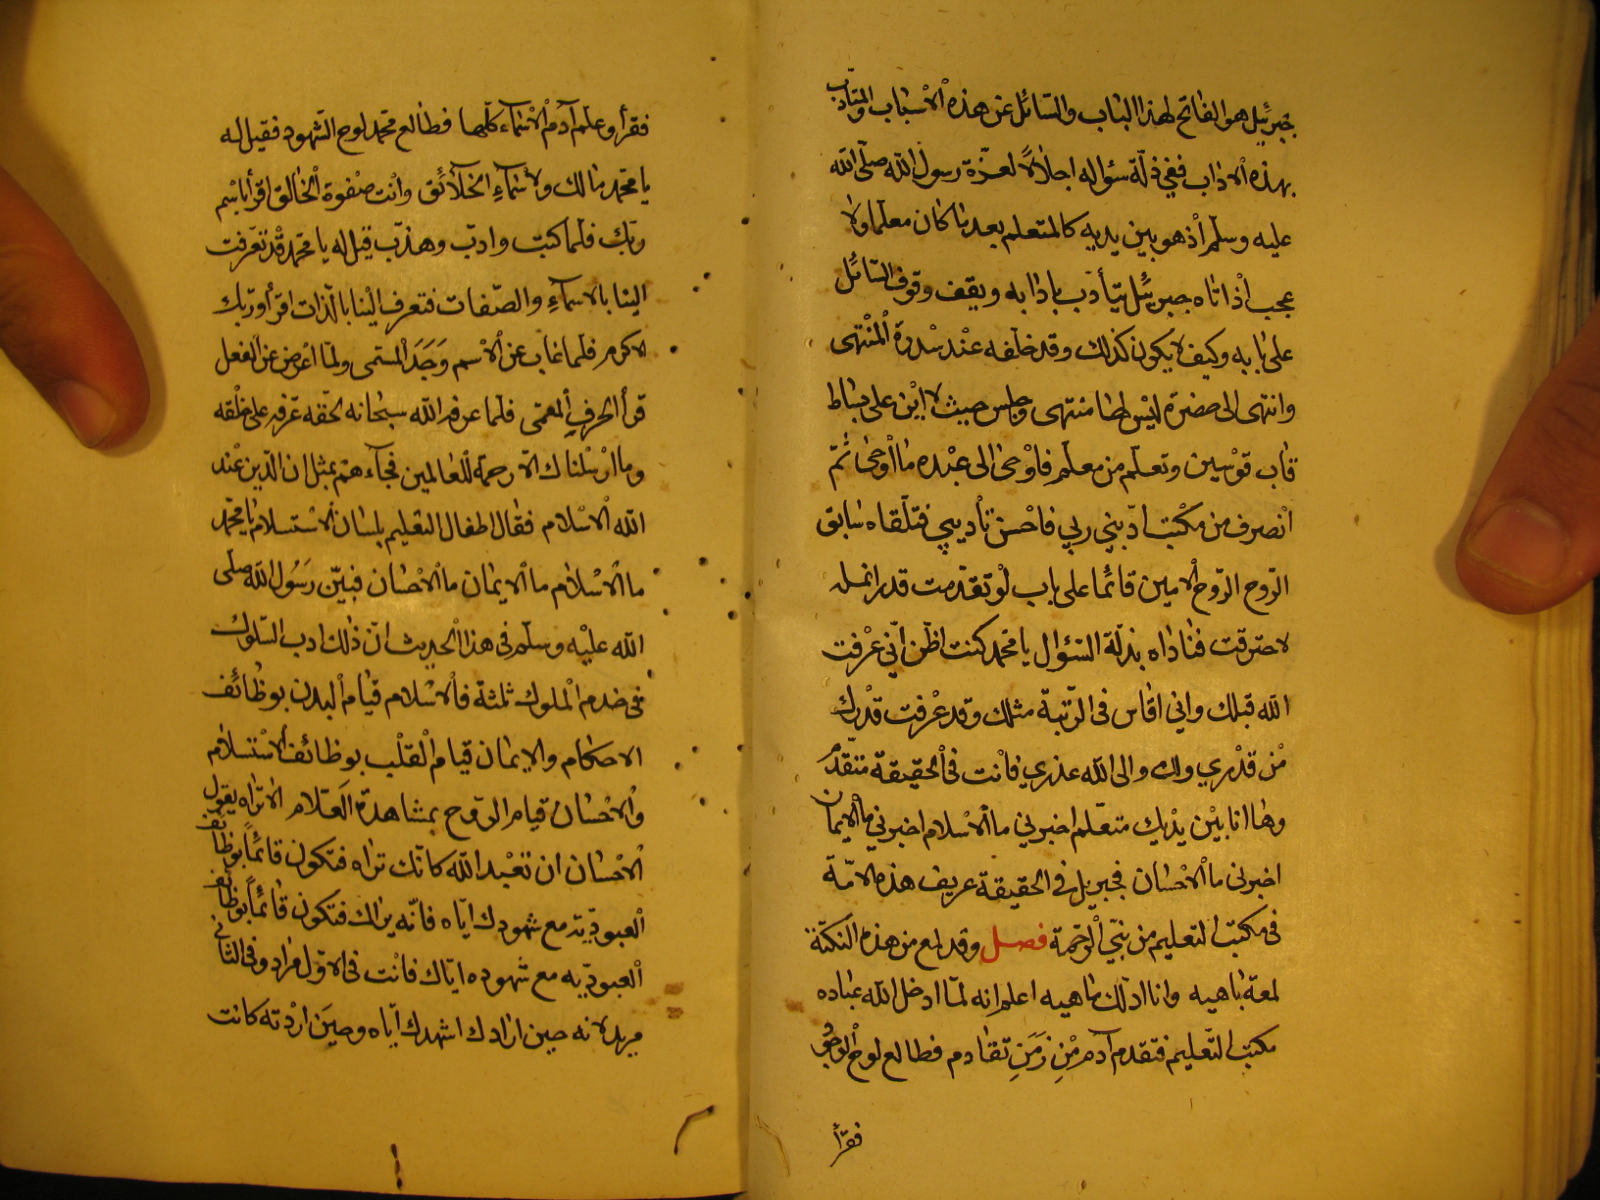 جبرئيل هو الفاتح لهذا الباب والسائل عن هذه الاسباب والمتأدّب
بهذه الاداب ففي ذلّة سؤاله اجلالاً لعزّة رسول الله صلّى الله
عليه وسلّم اذ هو بين يديه كالمتعلم بعد ما كان معلّما ولا
عجب اذا تاه جبرئيل يتأدّب بادابه ويقف وقوف السائل
على بابه وكيف لا يكون كذلك وقد خلّفه عند سدرة المنتهى
وانتهى الى حضرة ليس لها منتهى وجلس حيث لا اين على بساط
قاب قوسين وتعلّم من معلّم فاوحى الى عبده ما اوحى ثمّ
انصرف من مكتب ادّبني ربي فاحسن تأديبي فتلقاه سابق
الرّوح الرّوح الامين قائما على باب لو تقدّمت قدر انمله
لاحترقت فناداه بذلّة السّؤال يا محمّد كنت اظنّ انّي عرفت
الله قبلك واني اقاس في الرّتبة مثلك وقد عرفت قدرك
من قدري واك والى الله عذري فانت في الحقيقة متقدّم
وها انا بين يديك متعلّم اخبرني ما الاسلام اخبرني ما الايمان
اخبرني ما الاحسان فجبريل في الحقيقة عريف هذه الامّة
في مكتب التعليم من نبيّ الرّحمة فصل وقد لمع من هذه النكتة
لمعة باهيه وانا ادلك ما هيه اعلم انه لمّا ادخل الله عباده
مكتب التّعليم فتقدم آدم من زمن تقادم فطالع لوح الوجود
فقرأ
فقرأ وعلّم آدم الاسمآء كلّها فطالع محمّد لوح الشّهود فقيل له
يا محمّد مالك ولاسمآءِ الخلآئق وانت صفوة الخالق اقرأ باسم
ربّك فلمّا كتب وادب وهذّب قيل له يا محمّد قد تعرّفت
الينا بالاسمآءِ والصّفات فتعرف الينا بالذات اقرأ وربّك
الاكرم فلما غاب عن الاسم وَجَدَ المسمّى ولمّا اعرض عن الفعل
قرأ الحرف المعمّى فلما عرفه الله سبحانه لحقّه عرّفه على خلقه
وما ارسلناك الّا رحمة للعالمين فجآءهم بمثل ان الدّين عند
الله الاسلام فقال اطفال التعليم بلسان الاستسلام يا محمّد
ما الاسلام ما الايمان ما الاحسان فبيّن رَسُول الله صلّى
الله عليه وسلّم في هذا الحديث انّ ذلك ادب السّلوك
في خدم الملوك ثلثة فالاسلام قيام البدن بوظائف
الاحكام والايمان قيام القلب بوظائف الاستسلام
والاحسان قيام الروح بمشاهدة العَلّام الا تراه يقول
الاحسان ان تعبد الله كانّك تراه فتكون قائماً بوظائف
العبوديّة مع شهودك ايّاه فانّه يراك فتكون قائماً بوظائف
العبوديّه مع شهوده ايّاك فانت في الاوّل مراد وفي الثاني
مريد لانه حين ارادك اشهدك ايّاه وحين اردته كانت